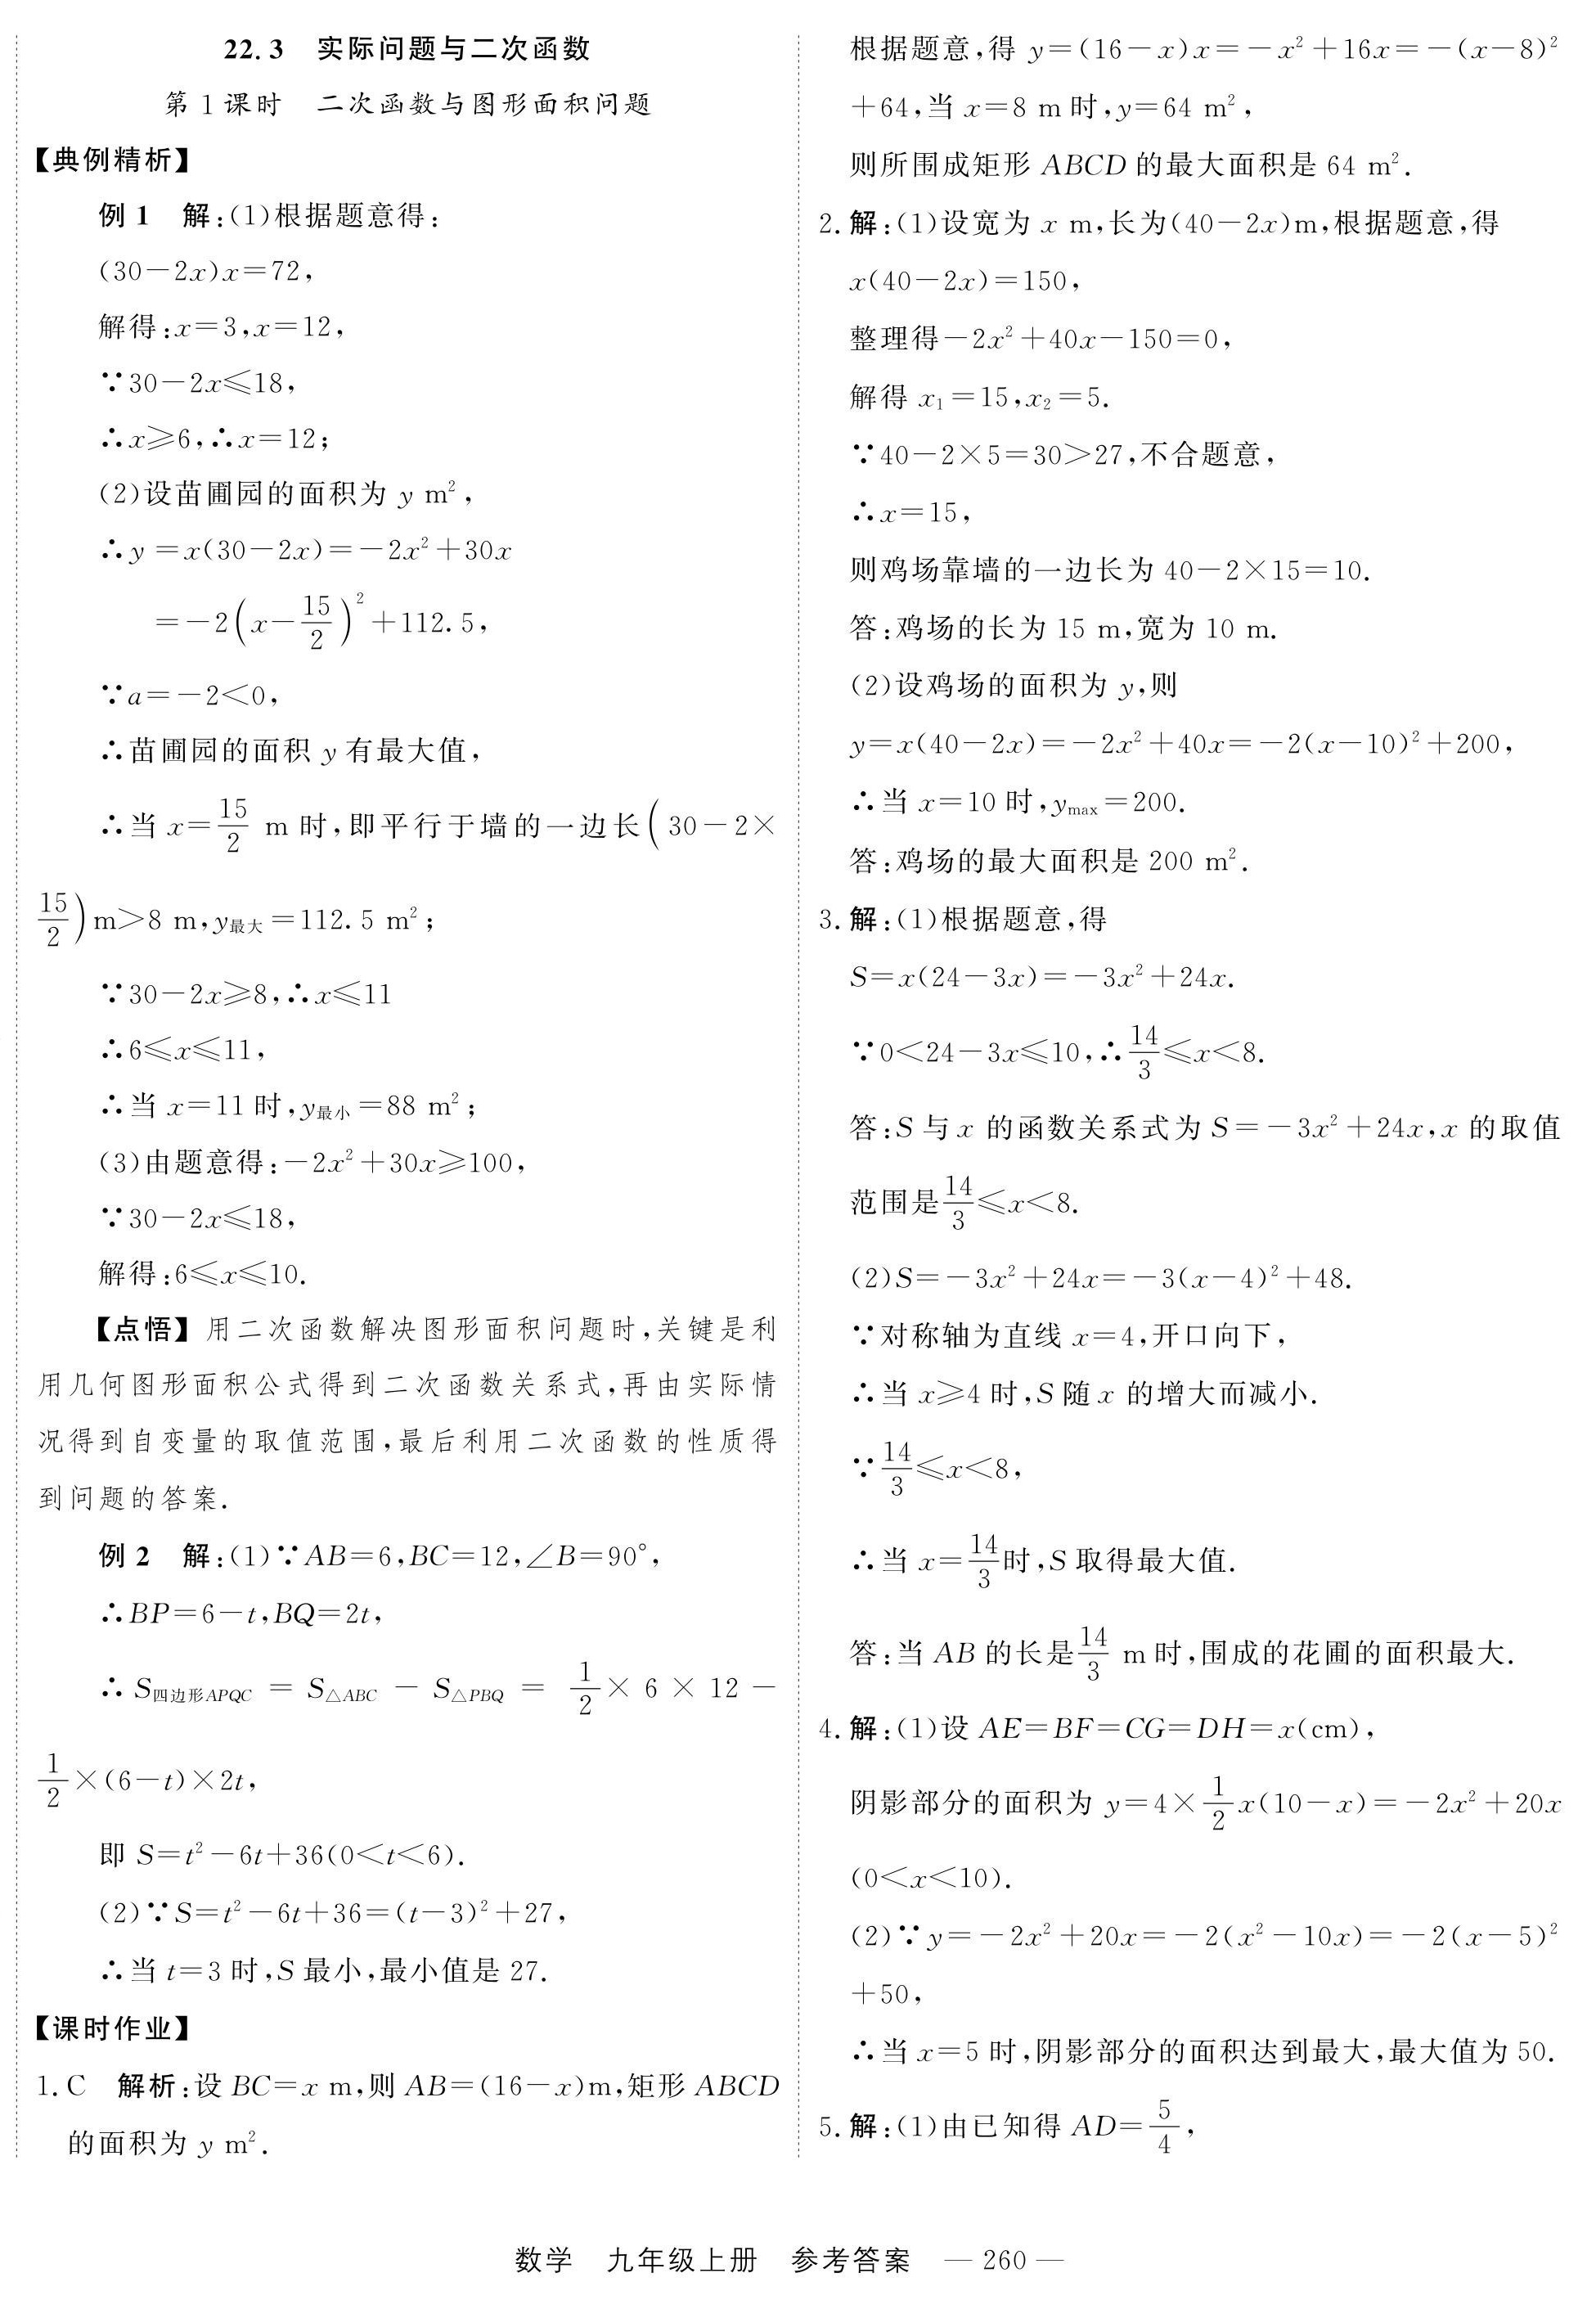 22.3 实际问题与二次函数
第1课时 二次函数与图形面积问题
【典例精析】
例1 解:(1)根据题意得:
(30-2x)x=72,
解得:x=3,x=12,
∵30-2x≤18,
∴x≥6,∴x=12;
(2)设苗圃园的面积为 y m²,
∴y =x(30-2x)=-2x²+30x
=-2(x-15/2)²+112.5,
∵a=-2<0,
∴苗圃园的面积 y 有最大值,
∴当 x=15/2 m 时,即平行于墙的一边长(30-2×
15/2)m>8 m,y最大=112.5 m²;
∵30-2x≥8,∴x≤11
∴6≤x≤11,
∴当 x=11 时,y最小=88 m²;
(3)由题意得:-2x²+30x≥100,
∵30-2x≤18,
解得:6≤x≤10.
【点悟】用二次函数解决图形面积问题时,关键是利
用几何图形面积公式得到二次函数关系式,再由实际情
况得到自变量的取值范围,最后利用二次函数的性质得
到问题的答案.
例2 解:(1)∵AB=6,BC=12,∠B=90°,
∴BP=6-t,BQ=2t,
∴S四边形APQC = S△ABC - S△PBQ = 1/2 × 6 × 12 -
1/2×(6-t)×2t,
即 S=t²-6t+36(0<t<6).
(2)∵S=t²-6t+36=(t-3)²+27,
∴当 t=3 时,S 最小,最小值是 27.
【课时作业】
1.C 解析:设 BC=x m,则 AB=(16-x)m,矩形 ABCD
的面积为 y m².
根据题意,得 y=(16-x)x=-x²+16x=-(x-8)²
+64,当 x=8 m 时,y=64 m²,
则所围成矩形 ABCD 的最大面积是 64 m².
2.解:(1)设宽为 x m,长为(40-2x)m,根据题意,得
x(40-2x)=150,
整理得-2x²+40x-150=0,
解得 x₁=15,x₂=5.
∵40-2×5=30>27,不合题意,
∴x=15,
则鸡场靠墙的一边长为 40-2×15=10.
答:鸡场的长为 15 m,宽为 10 m.
(2)设鸡场的面积为 y,则
y=x(40-2x)=-2x²+40x=-2(x-10)²+200,
∴当 x=10 时,ymax=200.
答:鸡场的最大面积是 200 m².
3.解:(1)根据题意,得
S=x(24-3x)=-3x²+24x.
∵0<24-3x≤10,∴14/3≤x<8.
答:S 与 x 的函数关系式为 S=-3x²+24x,x 的取值
范围是14/3≤x<8.
(2)S=-3x²+24x=-3(x-4)²+48.
∵对称轴为直线 x=4,开口向下,
∴当 x≥4 时,S 随 x 的增大而减小.
∵14/3≤x<8,
∴当 x=14/3时,S 取得最大值.
答:当 AB 的长是14/3 m 时,围成的花圃的面积最大.
4.解:(1)设 AE=BF=CG=DH=x(cm),
阴影部分的面积为 y=4×1/2x(10-x)=-2x²+20x
(0<x<10).
(2)∵y=-2x²+20x=-2(x²-10x)=-2(x-5)²
+50,
∴当 x=5 时,阴影部分的面积达到最大,最大值为 50.
5.解:(1)由已知得 AD=5/4,
数学 九年级上册 参考答案 — 260 —